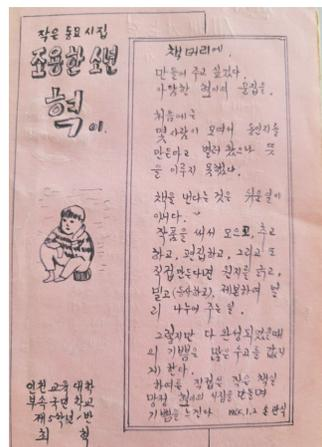 작은 동요 시집
조용한 소년
혁이.
인천 교육 대학
부속 국민학교
제5학년 반
최 혁
책머리에.
만들어 주고 싶었다.
아담한 혁이의 문집을.
처음에는
몇사람이 모여서 동인지를
만든다고 별러 왔으나 뜻
을 이루지 못했다.
책을 낸다는 것은 쉬운 일이
아니다.
작품을 써서 모으고, 추고
하고, 편집하고, 그리고 또
직접만든다면 원지를 긁고,
밀고(등사하고), 제본하여 널
리 나누어 주는 일.
그렇지만 다 완성되었을때
의 기쁨은 많은 수고를 값지
게 한다.
하여튼 직접 작은 책일
망정 혁이의 시집을 만들며
기쁨을 느낀다 1965.1.2